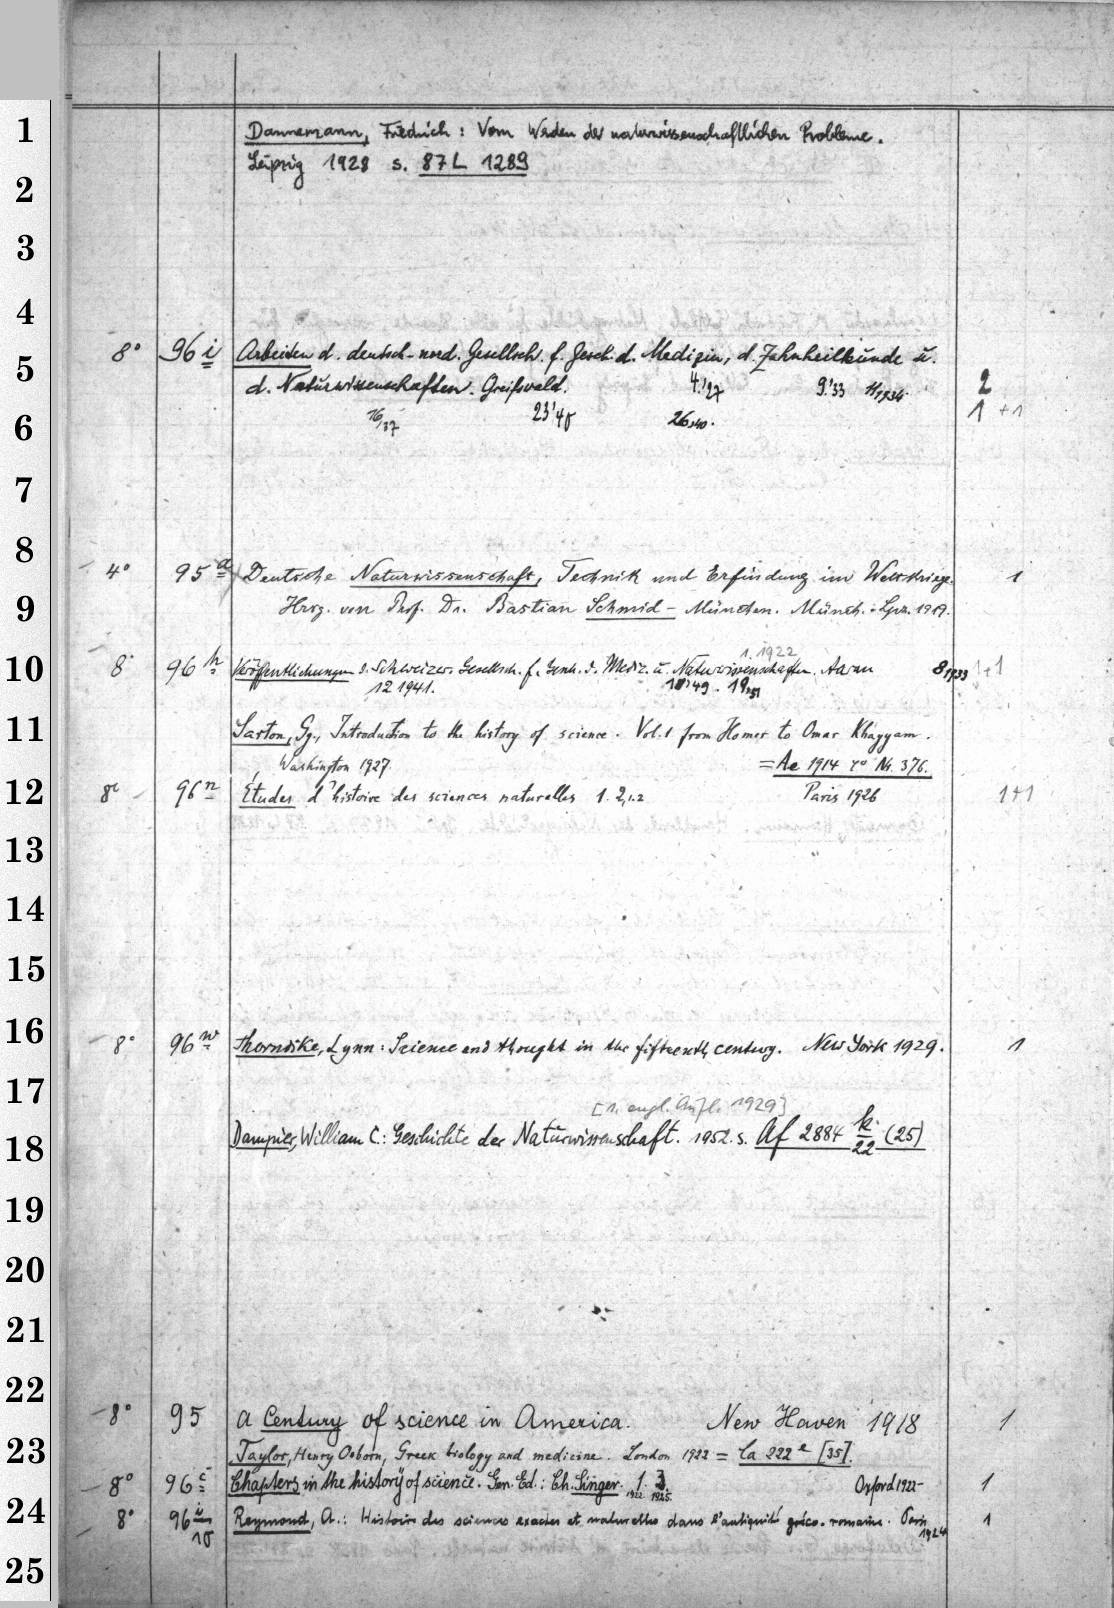 1
Dannemann, Friedrich: Vom Werden der naturwissenschaftlichen Probleme.
Leipzig 1928 s. 87 L 1289
2
3
4
8° 96 i Arbeiten d. deutsch-nord. Gesellsch. f. Gesch. d. Medizin, d. Zahnheilkunde u.
5
d. Naturwissenschaften. Greifswald. 4.'27 9.'33 11/1934. 2
16/37 23'40 26,40. 1 +1
6
7
8
4° 95 a Deutsche Naturwissenschaft, Technik und Erfindung im Weltkriege. 1
9
Hrsg. von Prof. Dr. Bastian Schmid – München. Münch. - Lpz. 1919.
1. 1922
10
8° 96 h Veröffentlichungen d. Schweizer. Gesellsch. f. Gesch. d. Mediz. u. Naturwissenschaften. Aarau 8 1933 1+1
12 1941. 18'49. 19,51
11
Sarton, Gg., Introduction to the history of science. Vol. 1 from Homer to Omar Khayyam.
Washington 1927. = Ae 1914 ro Nr. 376.
12
8° 96 n Études d'histoire des sciences naturelles 1. 2,1.2 Paris 1926 1+1
13
14
15
16
8° 96 w Thorndike, Lynn: Science and thought in the fifteenth century. New York 1929. 1
17
[1. engl. Aufl. 1929]
18
Dampier, William C.: Geschichte der Naturwissenschaft. 1952. s. Af 2884 k/22 (25)
19
20
21
22
8° 95 A Century of science in America. New Haven 1918 1
23
Taylor, Henry Osborn, Greek biology and medicine. London 1922 = La 222 e [35].
8° 96 c Chapters in the history of science. Gen. Ed.: Ch. Singer. 1. 1922 3. 1925. Oxford 1922- 1
24
8° 96 i/10 Reymond, A.: Histoire des sciences exactes et naturelles dans l'antiquité gréco-romaine. Paris 1924 1
25